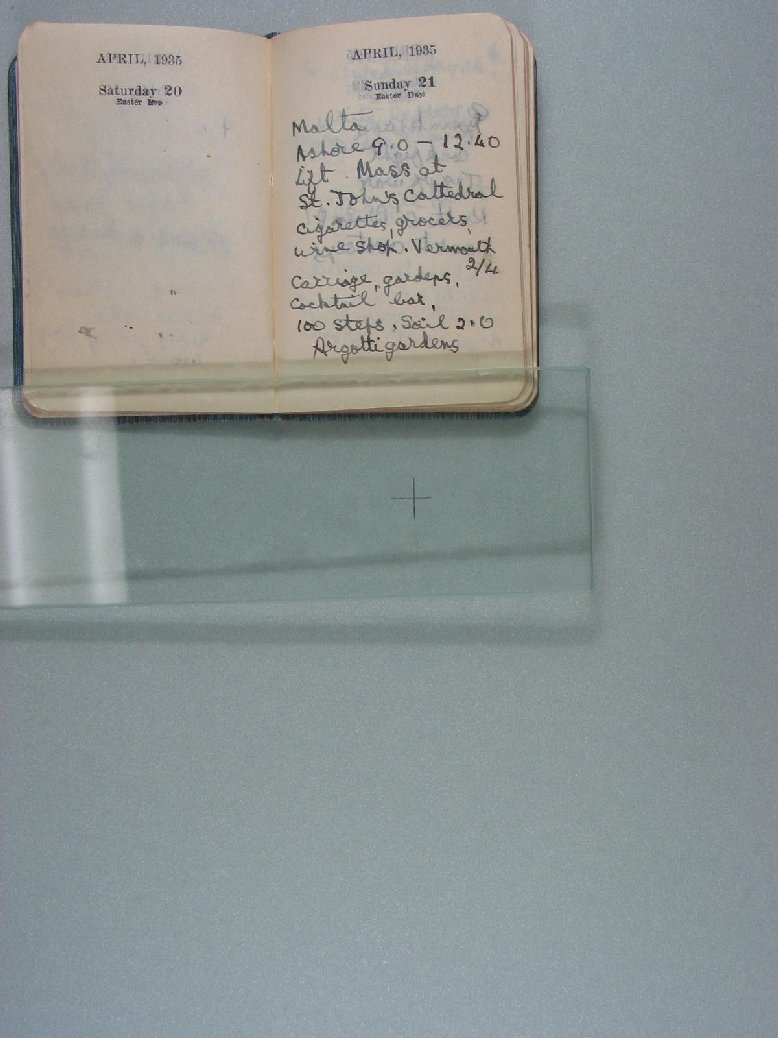 APRIL, 1935
Saturday 20
Easter Eve
APRIL, 1935
Sunday 21
Easter Day
Malta
Ashore 9.0 – 12.40
Lift. Mass at
St. John's Cathedral
cigarettes, grocers,
wine shop. Vermouth
2/4
Carriage, gardens,
cocktail bar,
100 steps. Sail 2.0
Argotti gardens